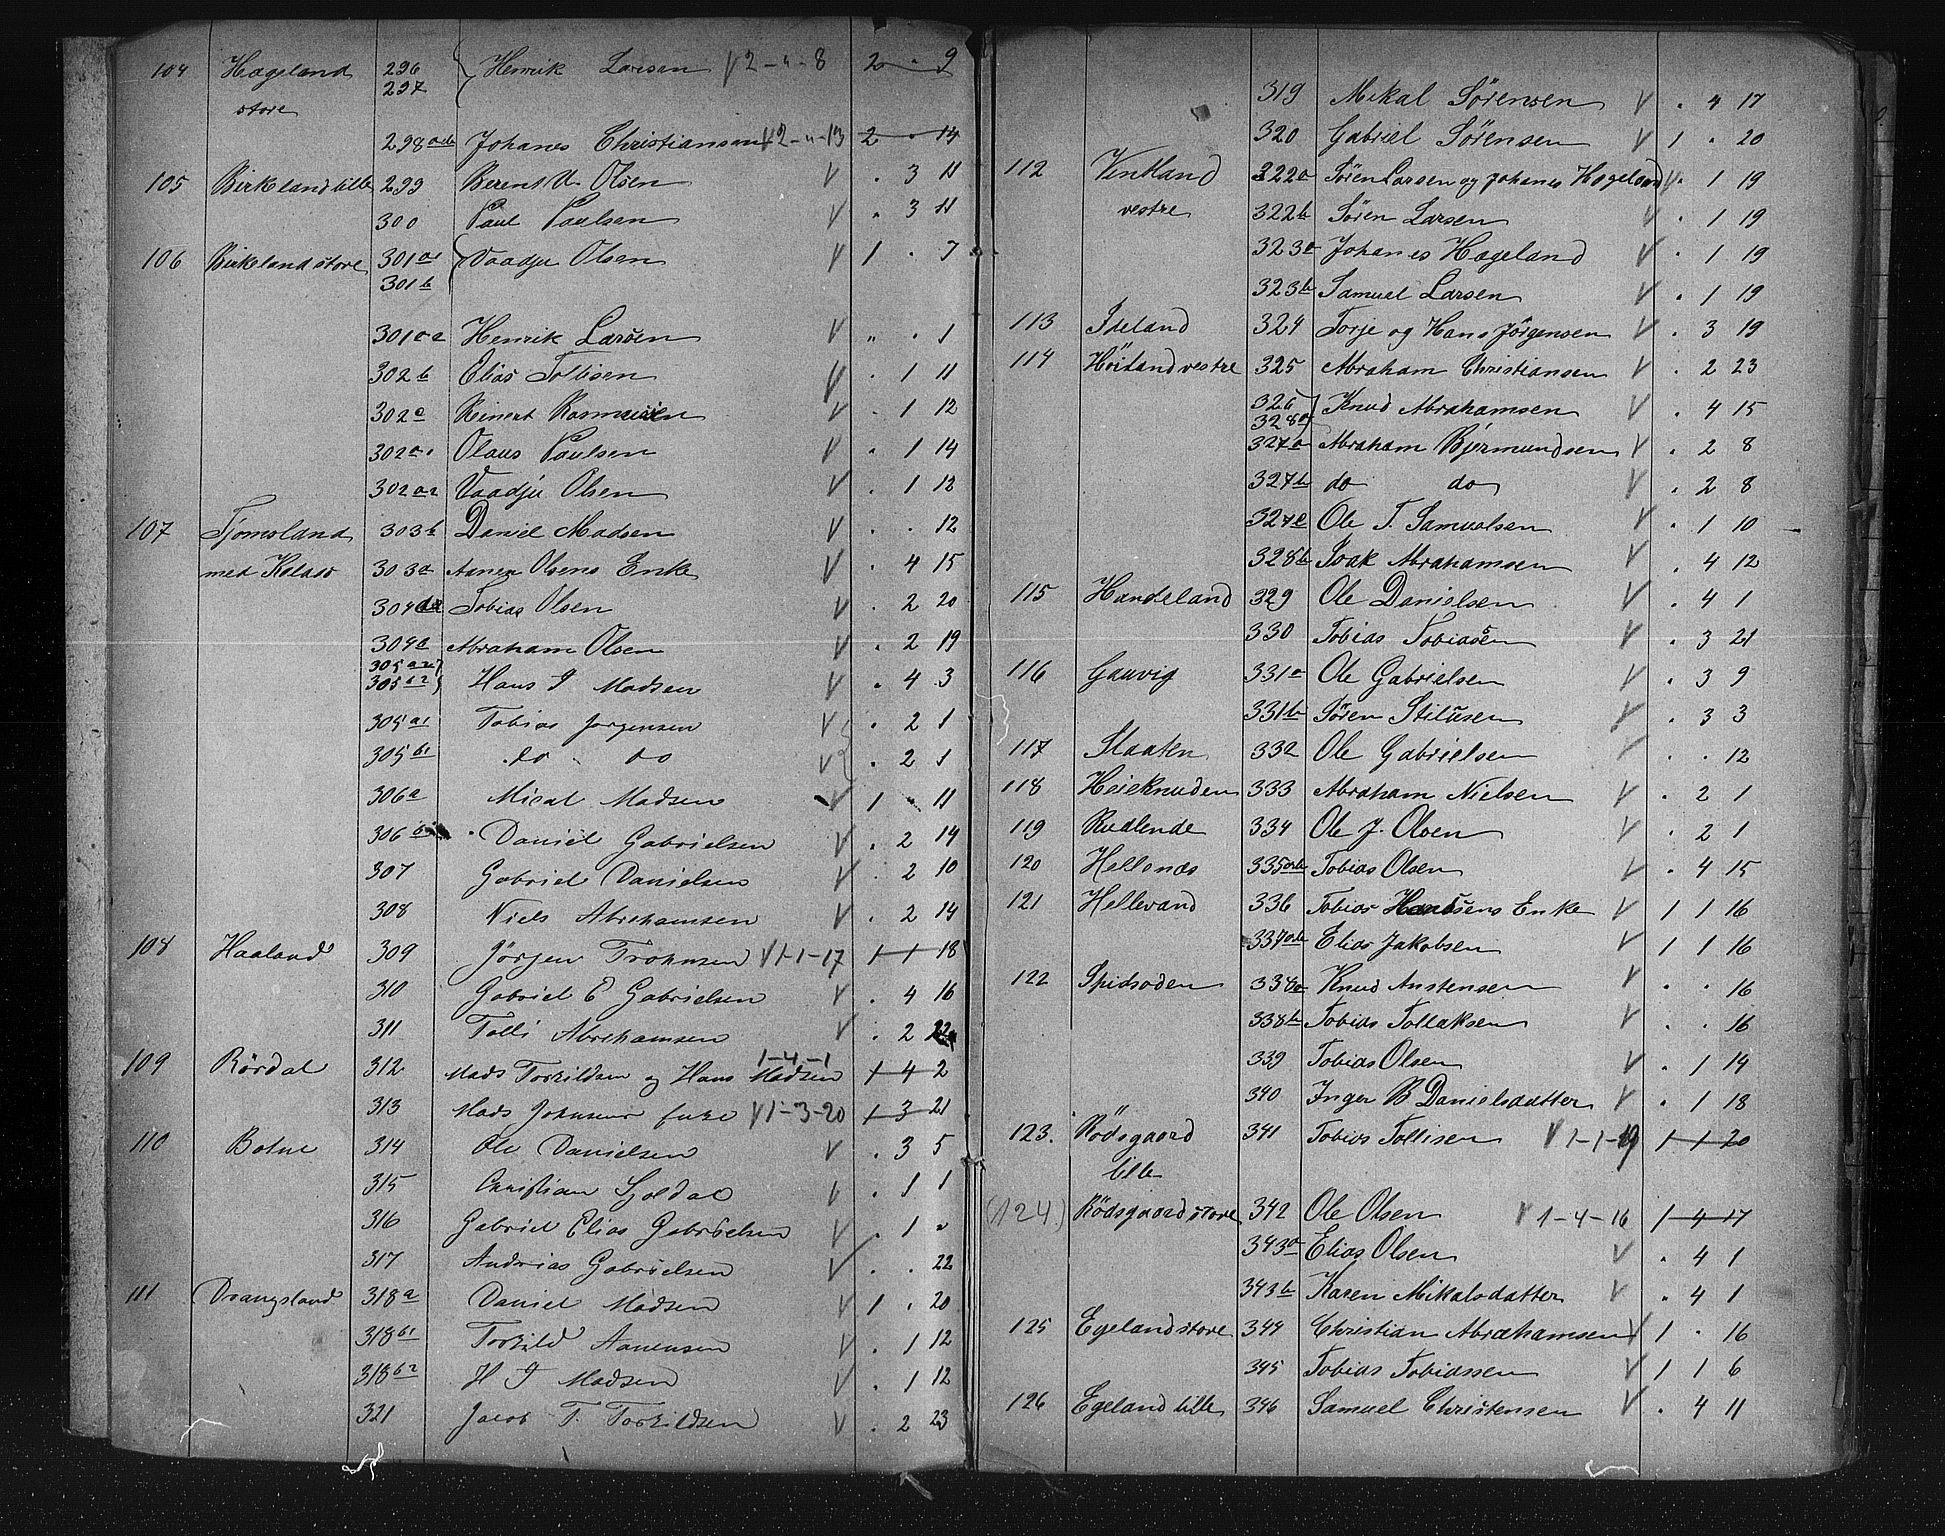 104 Hægeland 296 Henrik Larsen V 2 - " - 8 2 . 9
store 297
298 a b Johanes Christiansen V 2 - " - 13 2 . 14
105 Birkeland lille 299 Berent U. Olsen V . 3 11
300 Paul Paulsen V " 3 11
106 Birkeland store 301 a1 Vaadju Olsen V 1 . 7
301 b
301 a2 Henrik Larsen V " . 1
302 b Elias Tollisen V . 1 11
302 a Reinert Rasmussen V . 1 12
302 a1 Olaus Paulsen V . 1 14
302 a2 Vaadju Olsen V . 1 13
107 Tjomsland 303 b Daniel Madsen V . . 12
med 303 a Olsens Enke V . 4 15
304 Tobias Olsen V . 2 20
304 a Abraham Olsen V . 2 19
305
305 Hans J Madsen V . 4 3
305 a1 Tobias Jorgensen V . 2 1
305 b1 do do V . 2 1
306 a Mical Madsen V 1 . 11
306 b Daniel Gabrielsen V . 2 14
307 Gabriel Danielsen V . 2 10
308 Niels Abrehamsen V . 2 14
108 Haaland 309 Jörgen Trohnsen V 1-1-17 1 1 18
310 Gabriel E Gabrielsen V . 4 16
311 Tolli Abrehamsen V . 2 22
109 Rördal 312 Mads Torkildsen og Hans Madsen 1-4-1 1 4 2
313 Mads Johnsens Enke V 1-3-20 1 3 21
110 Botne 314 Ole Danielsen V . 3 5
315 Christian V . 1 1
316 Gabriel Elias Gabrielsen V . 1 "
317 Andrias Gabrielsen V . . 22
111 Drangsland 318 a Daniel Madsen V 1 . 20
318 b1 Torkild Aanensen V . 1 12
318 b2 H J Madsen V . 1 12
321 Jacob T. Torkildsen V . 2 23
319 Mikal Sörensen V . 4 17
320 Gabriel Sörensen V 1 . 20
112 Ventland 322 a Sören Larsen og Johanes Hægeland V . 1 19
vestre 322 b Sören Larsen V . 1 19
323 a Johanes Hægeland V . 1 19
323 b Samuel Larsen V . 1 19
113 Ideland 324 Torje og Hans Jörgensen V . 3 19
114 Höiland vestre 325 Abraham Christiansen V . 2 23
326
328 a Knud Abrahamsen V . 4 15
327 a Abraham Bjørmundsen V . 2 8
327 b do do V . 2 8
327 c Ole T. Samuelsen V . 1 10
328 b Isak Abrahamsen V . 4 12
115 Handeland 329 Ole Danielsen V . 4 1
330 Tobias Tobiassen V . 3 21
116 Gauvig 331 a Ole Gabrielsen V . 3 9
331 b Sören Stilüsen V . 3 3
117 Slaaten 332 Ole Gabrielsen V . . 12
118 Heieknuden 333 Abraham Nielsen V . 2 1
119 Rudlende 334 Ole J. Olsen V . 2 1
120 Hellenæs 335 a b Tobias Olsen V . 4 15
121 Hellevand 336 Tobias Hansens Enke V 1 1 16
337 a b Elias Jakobsen V 1 1 16
122 Spidsoden 338 a Knud Anstensen V . . 16
338 b Tobias Tollaksen V . . 16
339 Tobias Olsen V . 1 14
340 Inger B Danielsdatter V . 1 18
123. Rödsgaard 341 Tobias Tollisen V 1-1-19 1 1 20
lille
(124.) Rödsgaard store 342 Ole Olsen V 1-4-16 1 4 17
343 a Elias Olsen V . 4 1
343 b Karen Mikalsdatter V . 4 1
125 Egeland store 344 Christian Abrahamsen V 1 . 16
345 Tobias Tobiassen V 1 1 6
126 Egeland lille 346 Samuel Christensen V . 4 11